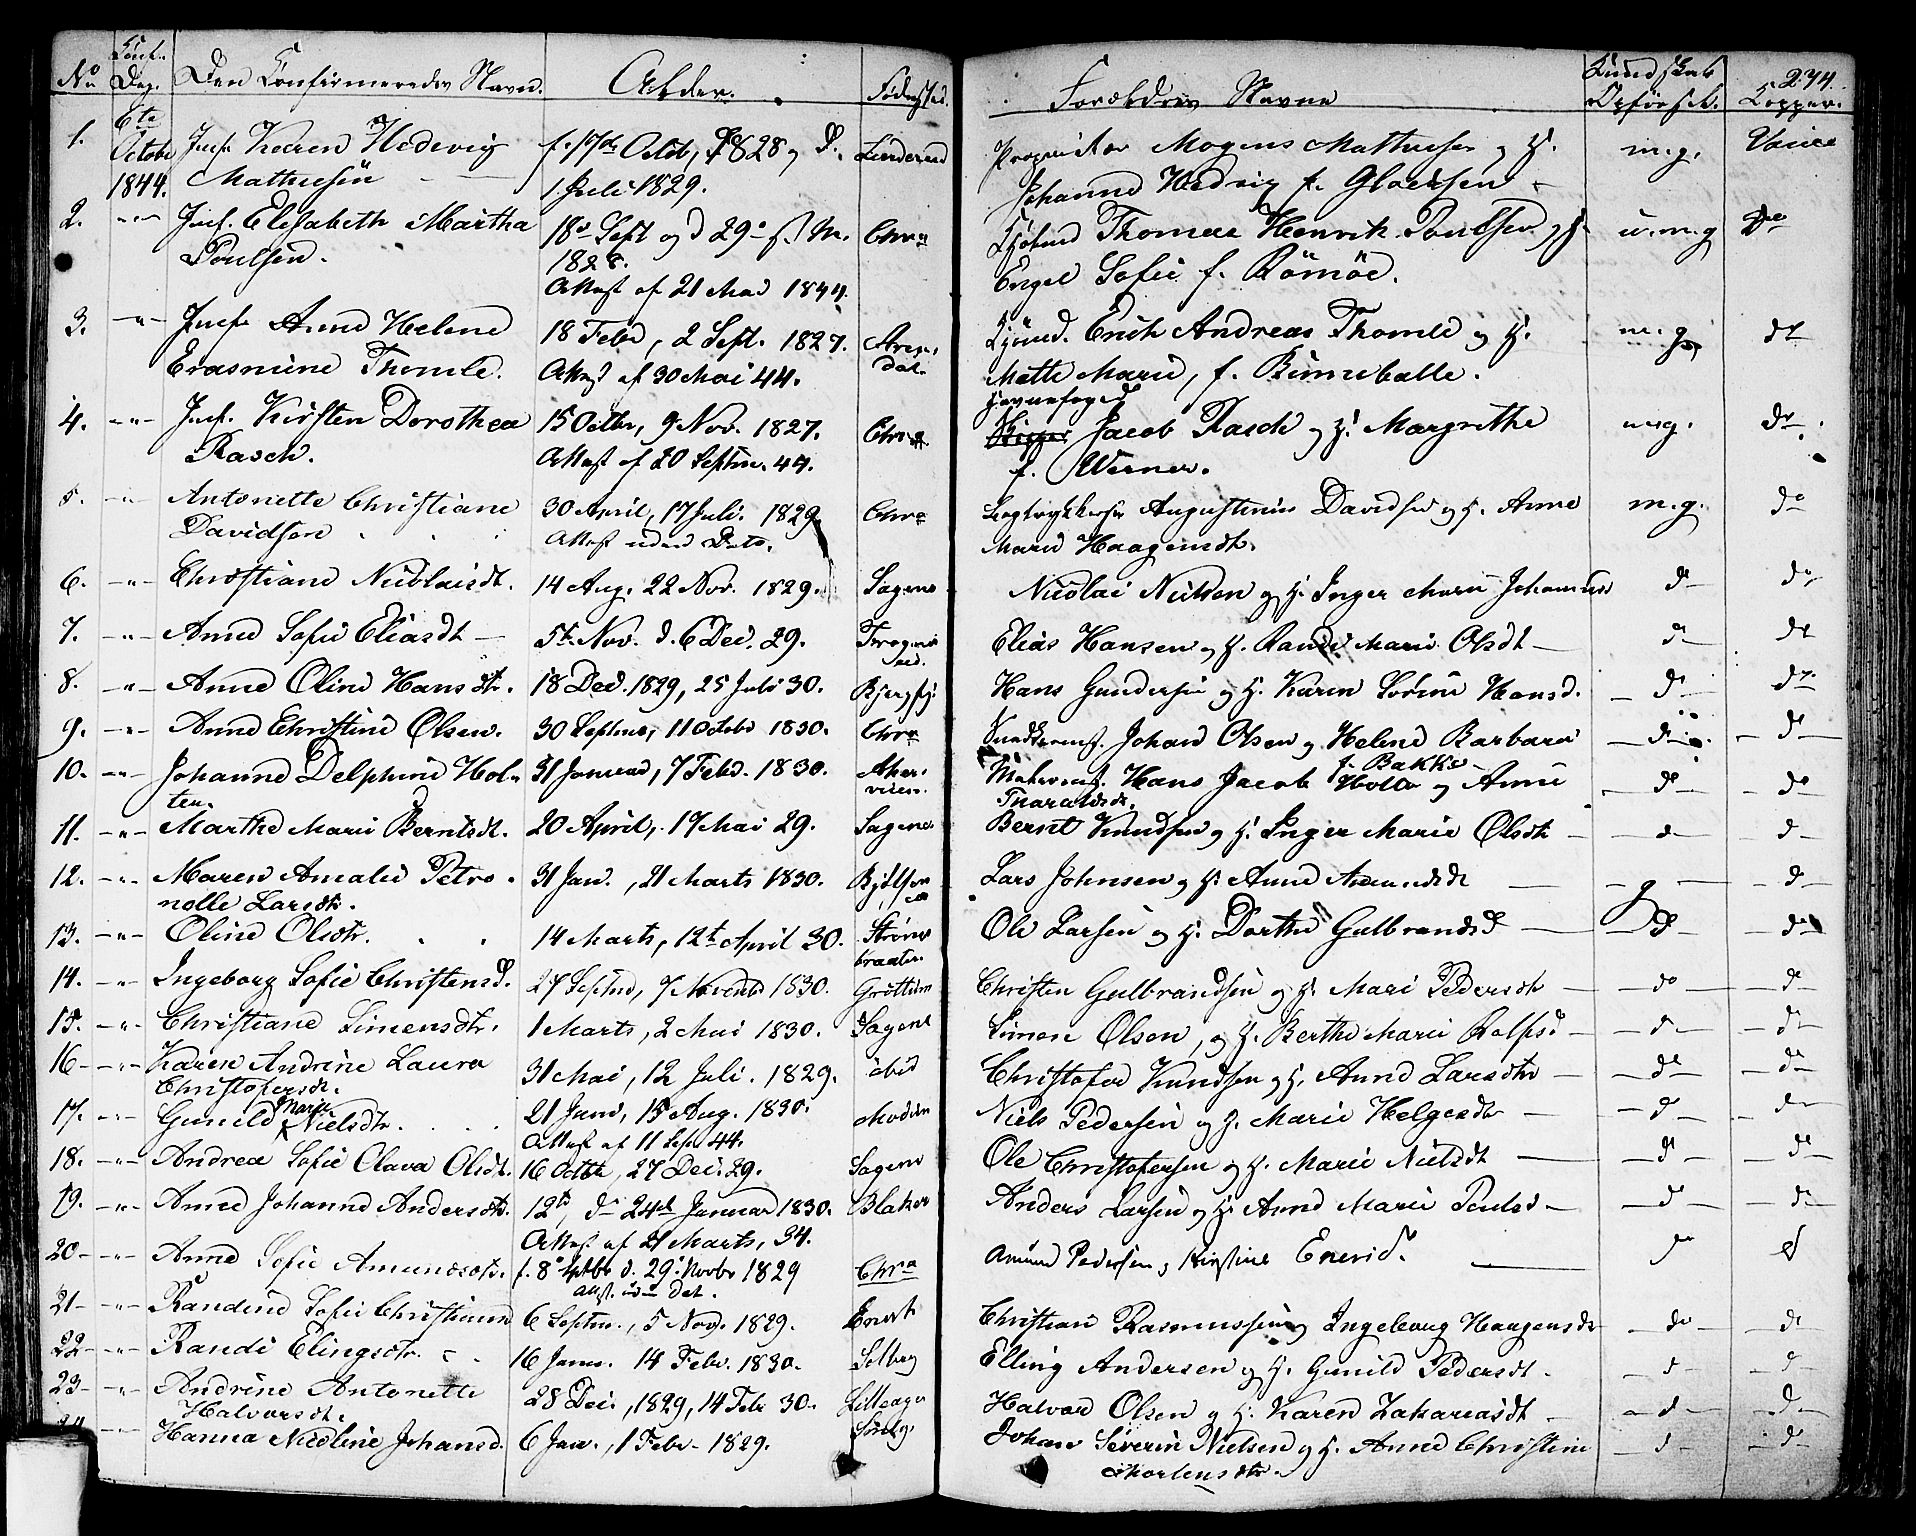 No. Conf. Dag. Den Confirmeredes Navn. Alder. Fødested. Forældres Navne Kundskab Opførsel. 234. Kopper.
1. 6te October 1844. Jmf. Karen Hedevig f. 17de Octob, 1828, d. Linderud Proprietær Mogens Mathiesen og H. m.g. Vacce
Mathiesen 1 Juli 1829. Johanne Hedvig f. Gløersen
2. Jmf. Elisabeth Martha 18de Sept og d 29 s. M. Chra Thomas Henrik Poulsen og H. u. m. g Do
Poulsen. 1828. Engel Sofie f. Rømøe.
Attest af 21 Mai 1844.
3. Jmf. Anne Helene 18 Febr, 2 Sept. 1827. Aren- Kjømd. Erich Andreas Thomle og H. m. g. do
Erasmine Thomle. Attest af 30 Mai 44. dal. Mathe Marie, f. Binneballe.
Havnefoged
4. Jmf. Kirsten Dorothea 15 Octbr, 9 Nov. 1827. Chra Jacob Rasch og H. Margrethe m.g. do
Rasch. Attest af 20 Septm. 44. f. Werner.
5. Antonette Christiane 30 April, 17 Juli. 1829. Chra Bogtrykkersv Augustinus Davidsen og H. Anne m.g. do
Davidsen Attest uden Dato. Marie Haagensdt.
6. Christiane Nicolaisdt. 14 Aug. 22 Nov. 1829. Sagene Nicolai Nielsen og H. Inger Marie Johannesd d do
7. Anne Sofie Eliasdt 5te Nov. d. 6 Dec. 29. Elias Hansen og H. Randi Marie Olsdt d do
8. Anne Oline Hansdtr. 18 Dec. 1829, 25 Juli 30. Hans Gundersen og H. Karen Sørine Hansd. d do
9. Anne Christine Olsen. 30 Septmr, 11 Octobr 1830. Chra Johan Olsen og Helene Barbara d d
f. Bakke
10. Johanne Delphine Hol- 31 Januar, 7 Febr. 1830. Aker- Hans Jacob Holte og Anne d do
ten. veien. Tharaldsdt.
11. Marthe Marie Berntsdt. 20 April, 17 Mai 29. Sagene Bernt Knudsen og H. Inger Marie Olsdt d d
12. Maren Amalie Petro- 31 Jan., 21 Marts 1830. Bjølsen Lars Johnsen og H. Anne Amundsdt g d
nelle Larsdtr.
13. Oline Olsdtr. 14 Marts, 12te April 30. Strøms- Ole Larsen og H. Dorthe Gulbrandsd d d
braaten
14. Ingeborg Sofie Christensd. 27 Septmb, 7 Novemb 1830. Grøttum Christen Gulbrandsen og H. Mari Pedersdt do d
15. Christiane Simensdtr. 1 Marts, 2 Mai 1830. Sagene Simen Olsen, og H. Berthe Marie Rolfsd d d
16 Karen Andrine Laura 31 Mai, 12 Juli. 1829. ibid Christofer Knudsen og H. Anne Larsdtr d d
Christofersdt.
Marie
17. Gunild Nielsdtr. 21 Juni, 15 Aug. 1830. Modum Niels Pedersen og H. Marie Helgesdtr d d
Attest af 11 Sept 44.
18. Andrea Sofie Olava Olsdt. 16 Octbr, 27 Dec. 29. Sagene Ole Christofersen og H. Marie Nielsdt d d
19. Anne Johanne Andersdtr. 12te, d 24de Januar 1830. Blaker Anders Larsen og H. Anne Marie Poulsd d d
Attest af 21 Marts, 34.
20 Anne Sofie Amundsdtr. f. 8 Septbr d. 29 Novbr 1829 Chra Amund Pedersen og Kirstine Enersd. do d
21 Randine Sofie Christiansd 6 Septm., 5 Nov. 1829. Christian Rasmussen og Ingeborg Haagensdr do d
22 Randi Elingsdtr. 16 Janr. 14 Febr. 1830. Solberg Elling Andersen og H. Gunild Pedersdt. d d
23 Andrine Antonette 28 Dec., 1829, 14 Febr 30. Lilleager Halvor Olsen og H. Karen Zakariasdt d d
Halvorsdt.
24 Hanna Nicoline Johansd. 6 Jan., 1 Febr. 1829. Johan Severin Nielsen og H. Anne Christine d d
Mortensdtr.